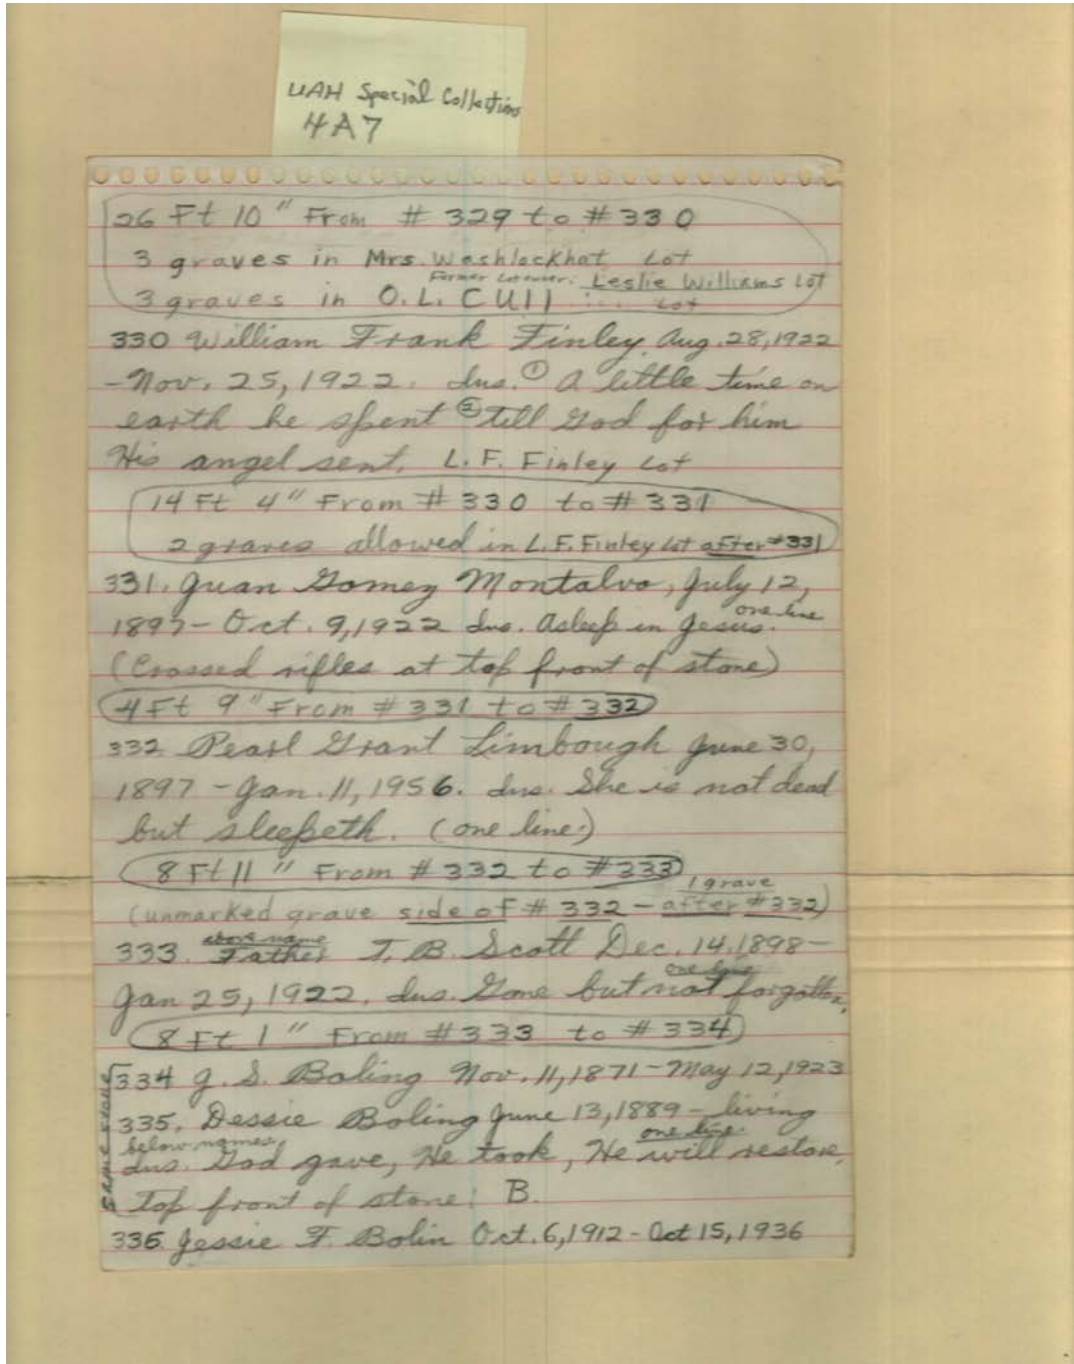 UAH Special Collections
4A7
26 Ft 10" From # 329 to # 330
3 graves in Mrs. Washlockhat Lot
Former Lotowner: Leslie Williams Lot
3 graves in O. L. Cull Lot
330 William Frank Finley, Aug. 28, 1922
- Nov. 25, 1922. dns. ① A little time on
earth he spent ② till God for him
His angel sent. L. F. Finley Lot
14 Ft 4" From # 330 to # 331
2 graves allowed in L.F. Finley Lot after #331
331. Juan Gomez Montalvo, July 12,
one line
1897 - Oct. 9, 1922 dns. Asleep in Jesus.
(Crossed rifles at top front of stone)
4 Ft 9" From # 331 to # 332
332 Pearl Grant Limbough June 30,
1897 - Jan. 11, 1956. dns. She is not dead
but sleepeth. (one line.)
8 Ft 11" From # 332 to #333
1 grave
(unmarked grave side of # 332 - after #332)
above name
333. Father T. B. Scott Dec. 14, 1898 -
one line
Jan 25, 1922, dns. Gone but not forgotten,
8 Ft 1" From #333 to # 334
same stone
334 J. S. Boling Nov. 11, 1871 - May 12, 1923
335. Dessie Boling June 13, 1889 - living
below names, one line.
dns. God gave, He took, He will restore,
top front of stone: B.
336. Jessie F. Bolin Oct. 6, 1912 - Oct 15, 1936